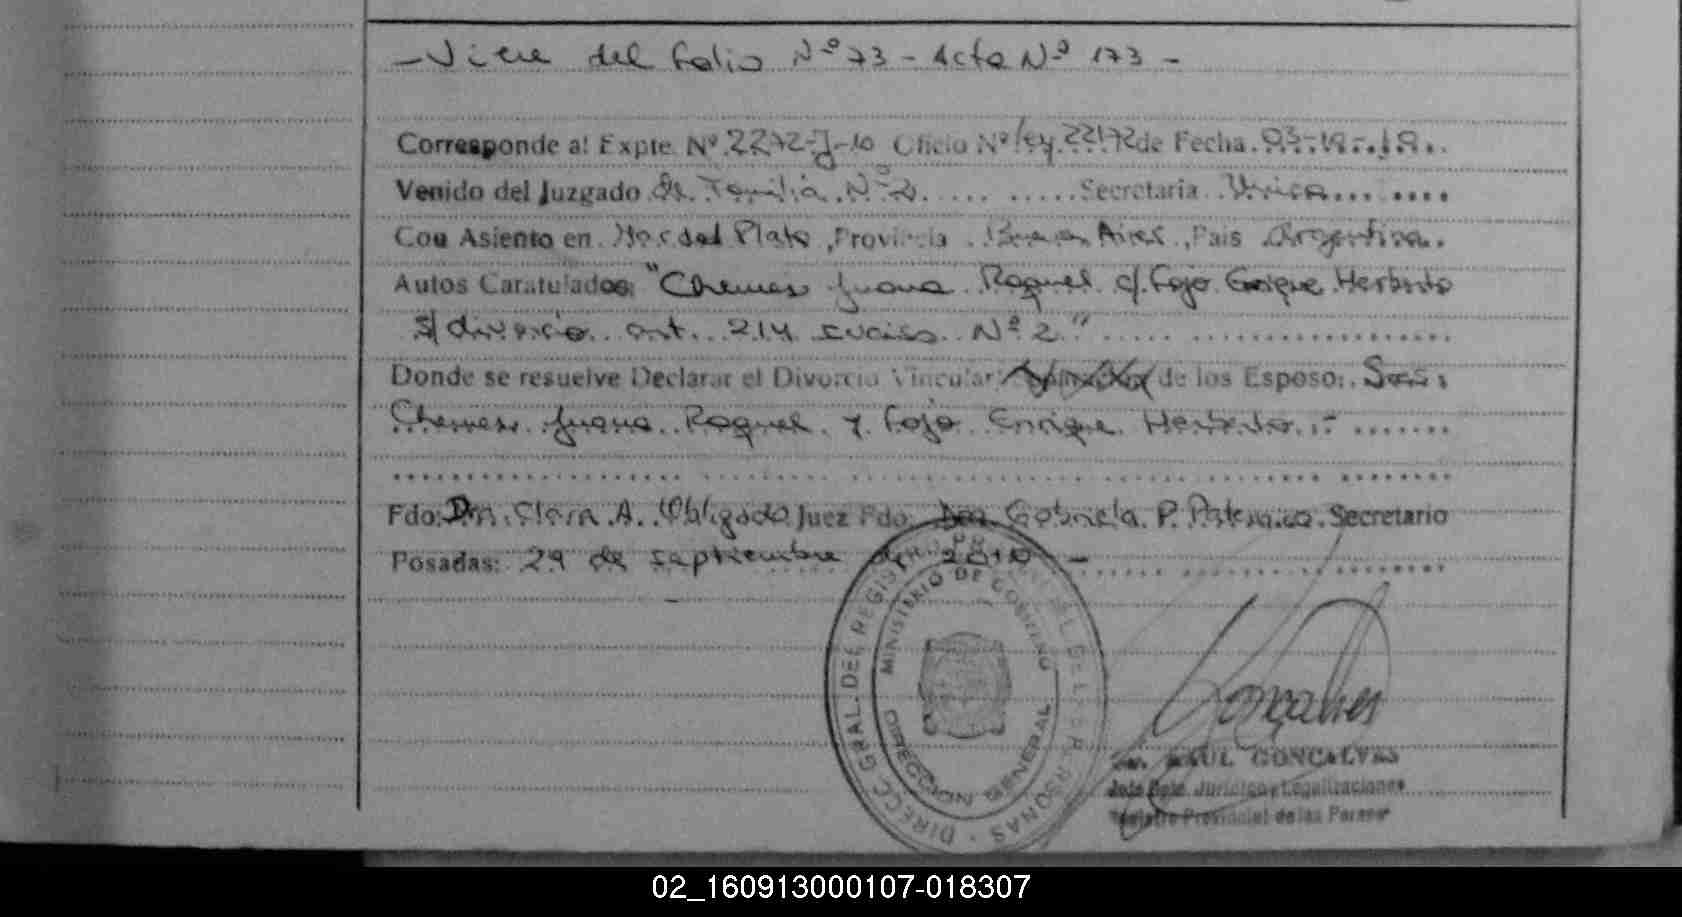 - Viene del folio Nº 73 - Acta Nº 173 -
Corresponde al Expte. Nº 2272-J-10 Oficio Nº Ley 22172 de Fecha
Venido del Juzgado de Familia Nº 2 Secretaria Unica
Con Asiento en Mar del Plata, Provincia Buenos Aires, Pais Argentina.
Autos Caratulados: "Chemes Juana Raquel c/ Fojo Enrique Herberto
s/ divorcio art. 214 inciso Nº 2"
Donde se resuelve Declarar el Divorcio Vincular de los Esposo:
Chemes Juana Raquel y Fojo Enrique Herberto.-
Fdo: Dra. Clara A. Obligado Juez Fdo: Dra Gabriela P. Secretario
Posadas: 29 de septiembre de 2010 -
DIRECC. GRAL. DEL REGISTRO PROVINCIAL DE LAS PERSONAS
MINISTERIO DE GOBIERNO
DIRECCION GENERAL
RAUL GONCALVES
Jefe Dpto. Juridico y Legalizaciones
Registro Provincial de las Personas
02_160913000107-018307